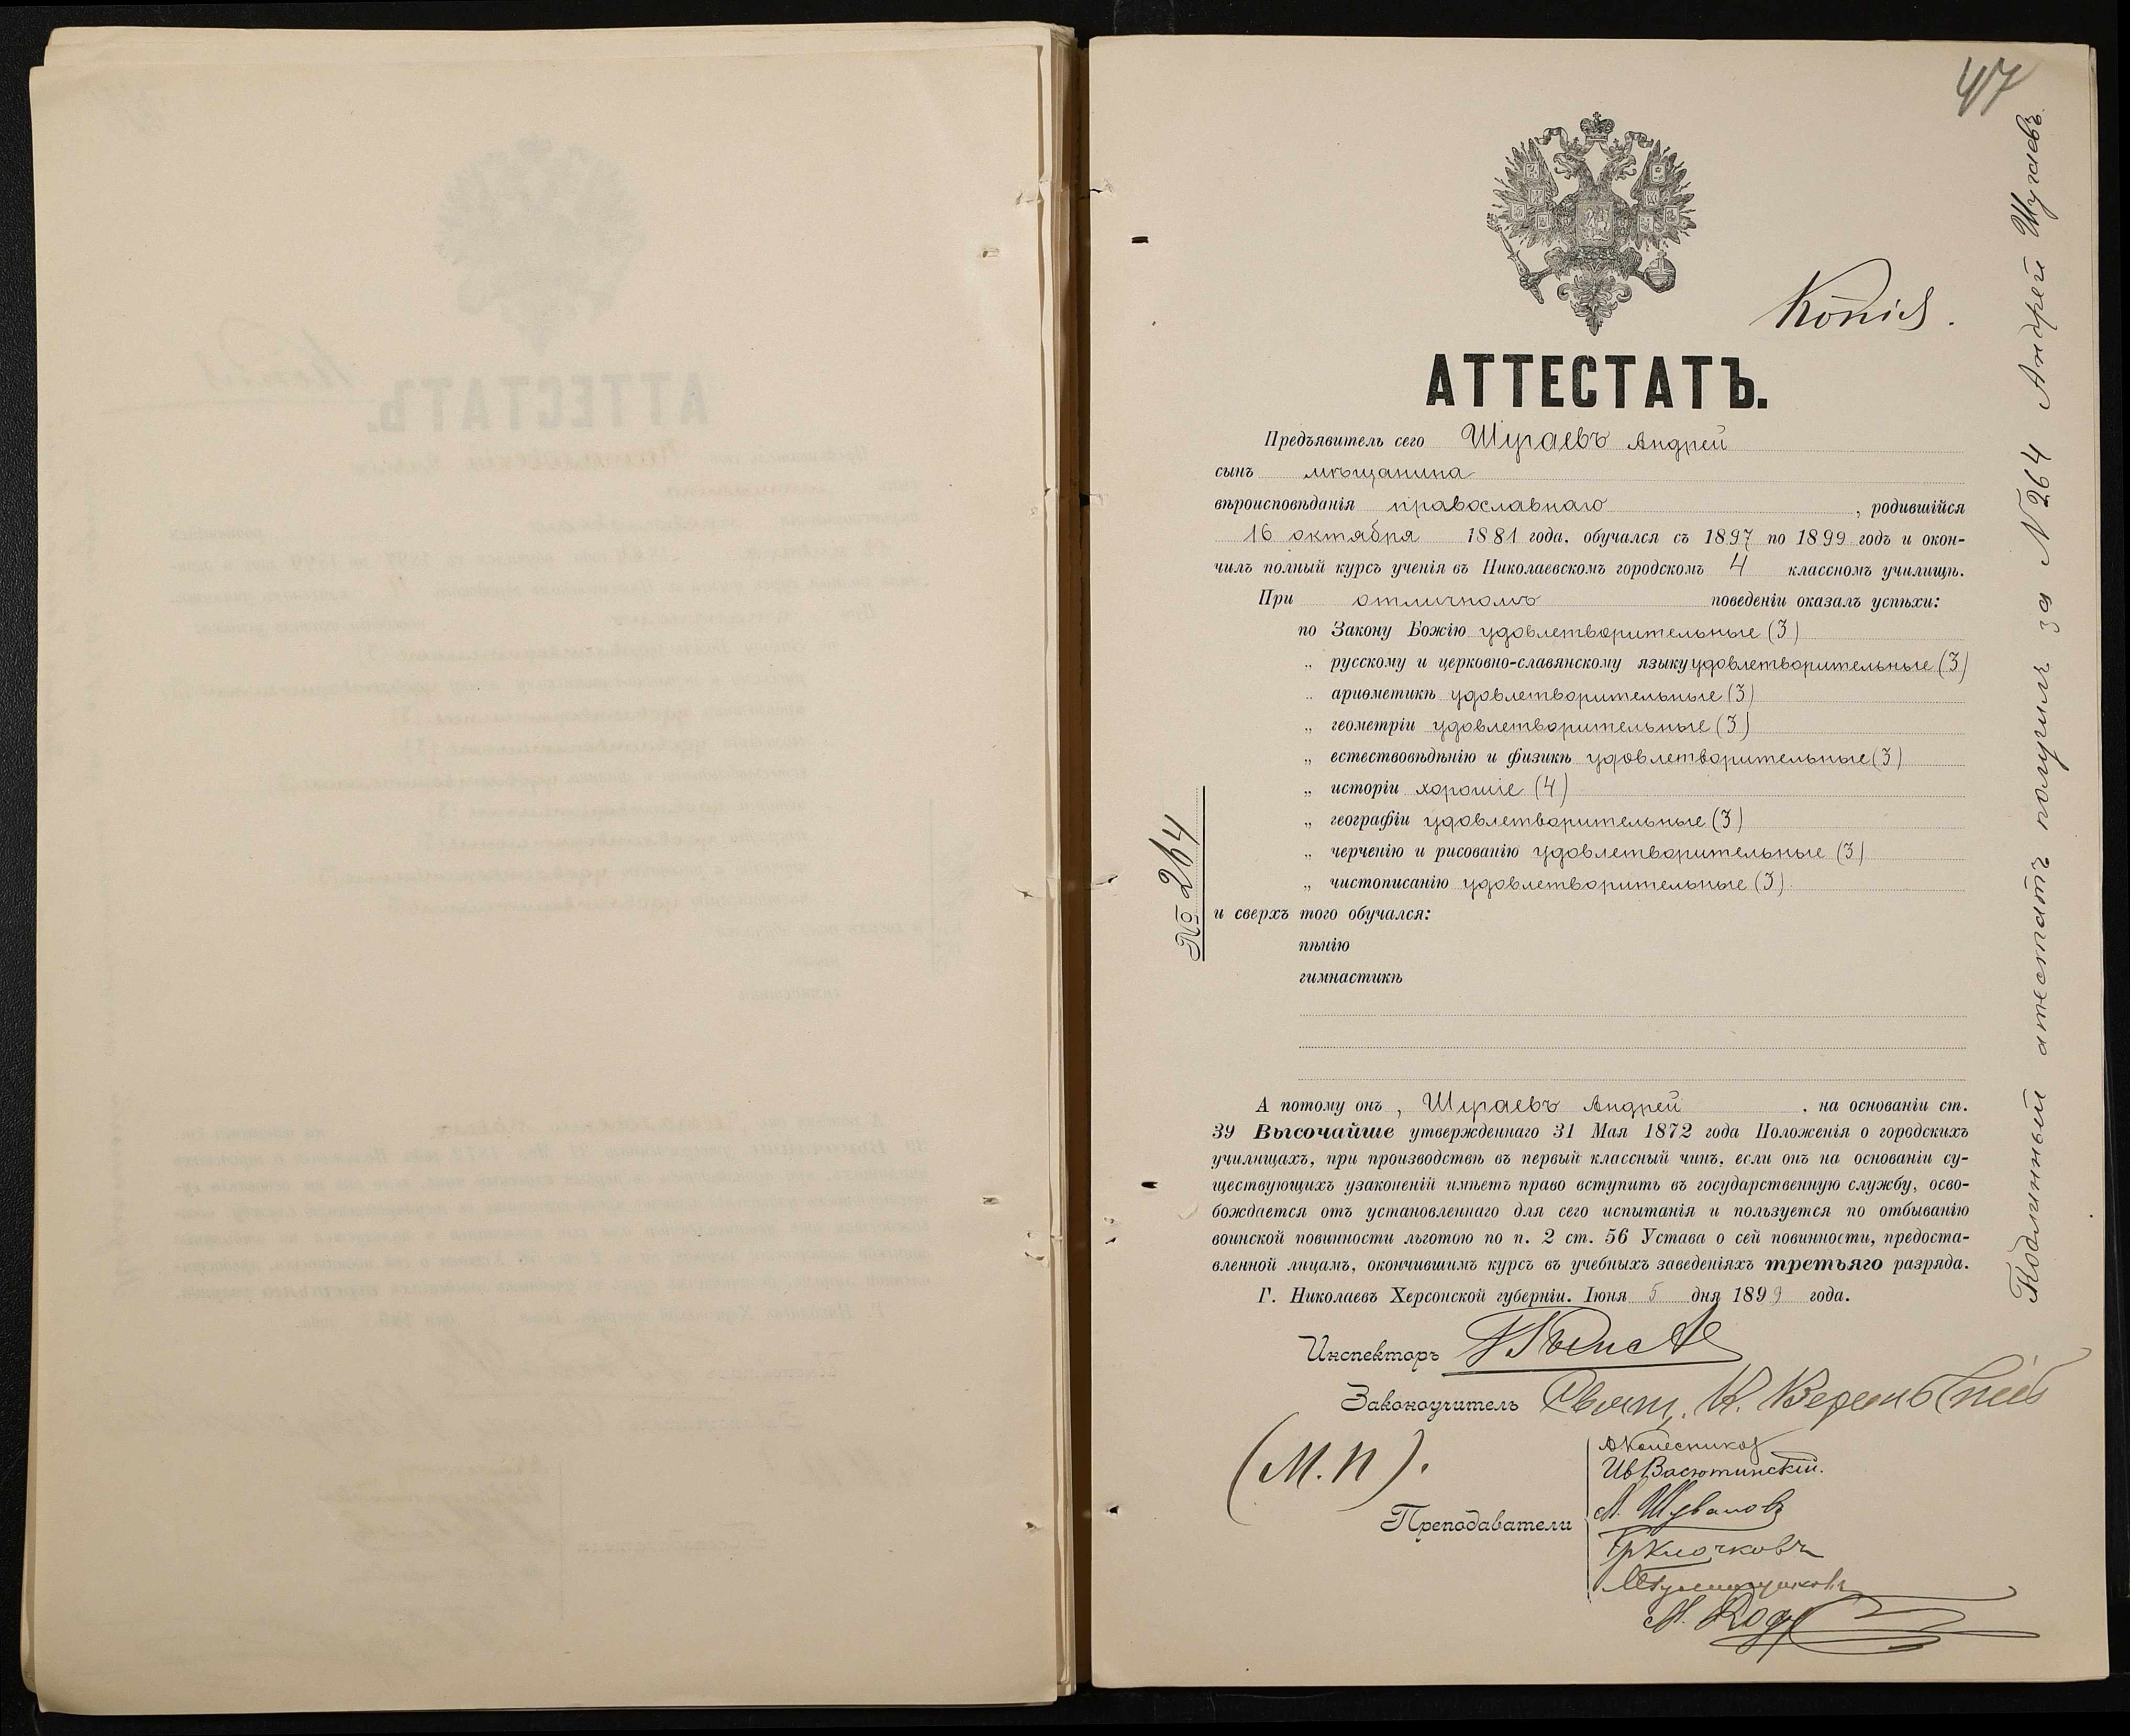 47
Копія.
АТТЕСТАТЪ.
Предъявитель сего Шугаевъ Андрей
сынъ мѣщанина
вѣроисповѣданія православнаго, родившійся
16 октября 1881 года, обучался съ 1897 по 1899 годъ и окон-
чилъ полный курсъ ученія въ Николаевскомъ городскомъ 4 классномъ училищѣ.
При отличномъ поведеніи оказалъ успѣхи:
по Закону Божію удовлетворительные (3)
„ русскому и церковно-славянскому языку удовлетворительные (3)
„ ариѳметикѣ удовлетворительные (3)
„ геометріи удовлетворительные (3)
„ естествовѣдѣнію и физикѣ удовлетворительные (3)
„ исторіи хорошіе (4)
„ географіи удовлетворительные (3)
„ черченію и рисованію удовлетворительные (3)
„ чистописанію удовлетворительные (3)
и сверхъ того обучался:
пѣнію
гимнастикѣ
А потому онъ, Шугаевъ Андрей, на основаніи ст.
39 Высочайше утвержденнаго 31 Мая 1872 года Положенія о городскихъ
училищахъ, при производствѣ въ первый классный чинъ, если онъ на основаніи су-
ществующихъ узаконеній имѣетъ право вступить въ государственную службу, осво-
бождается отъ установленнаго для сего испытанія и пользуется по отбыванію
воинской повинности льготою по п. 2 ст. 56 Устава о сей повинности, предоста-
вленной лицамъ, окончившимъ курсъ въ учебныхъ заведеніяхъ третьяго разряда.
Г. Николаевъ Херсонской губерніи. Іюня 5 дня 1899 года.
Инспекторъ
Законоучитель Свящ. К.
(М.П).
Преподаватели
А Колесников
Ив Васютинскій.
А. Шувалов
Гр Клочковъ
№ 264
Подлинный атестатъ получилъ за № 264 Андрей Шугаевъ.